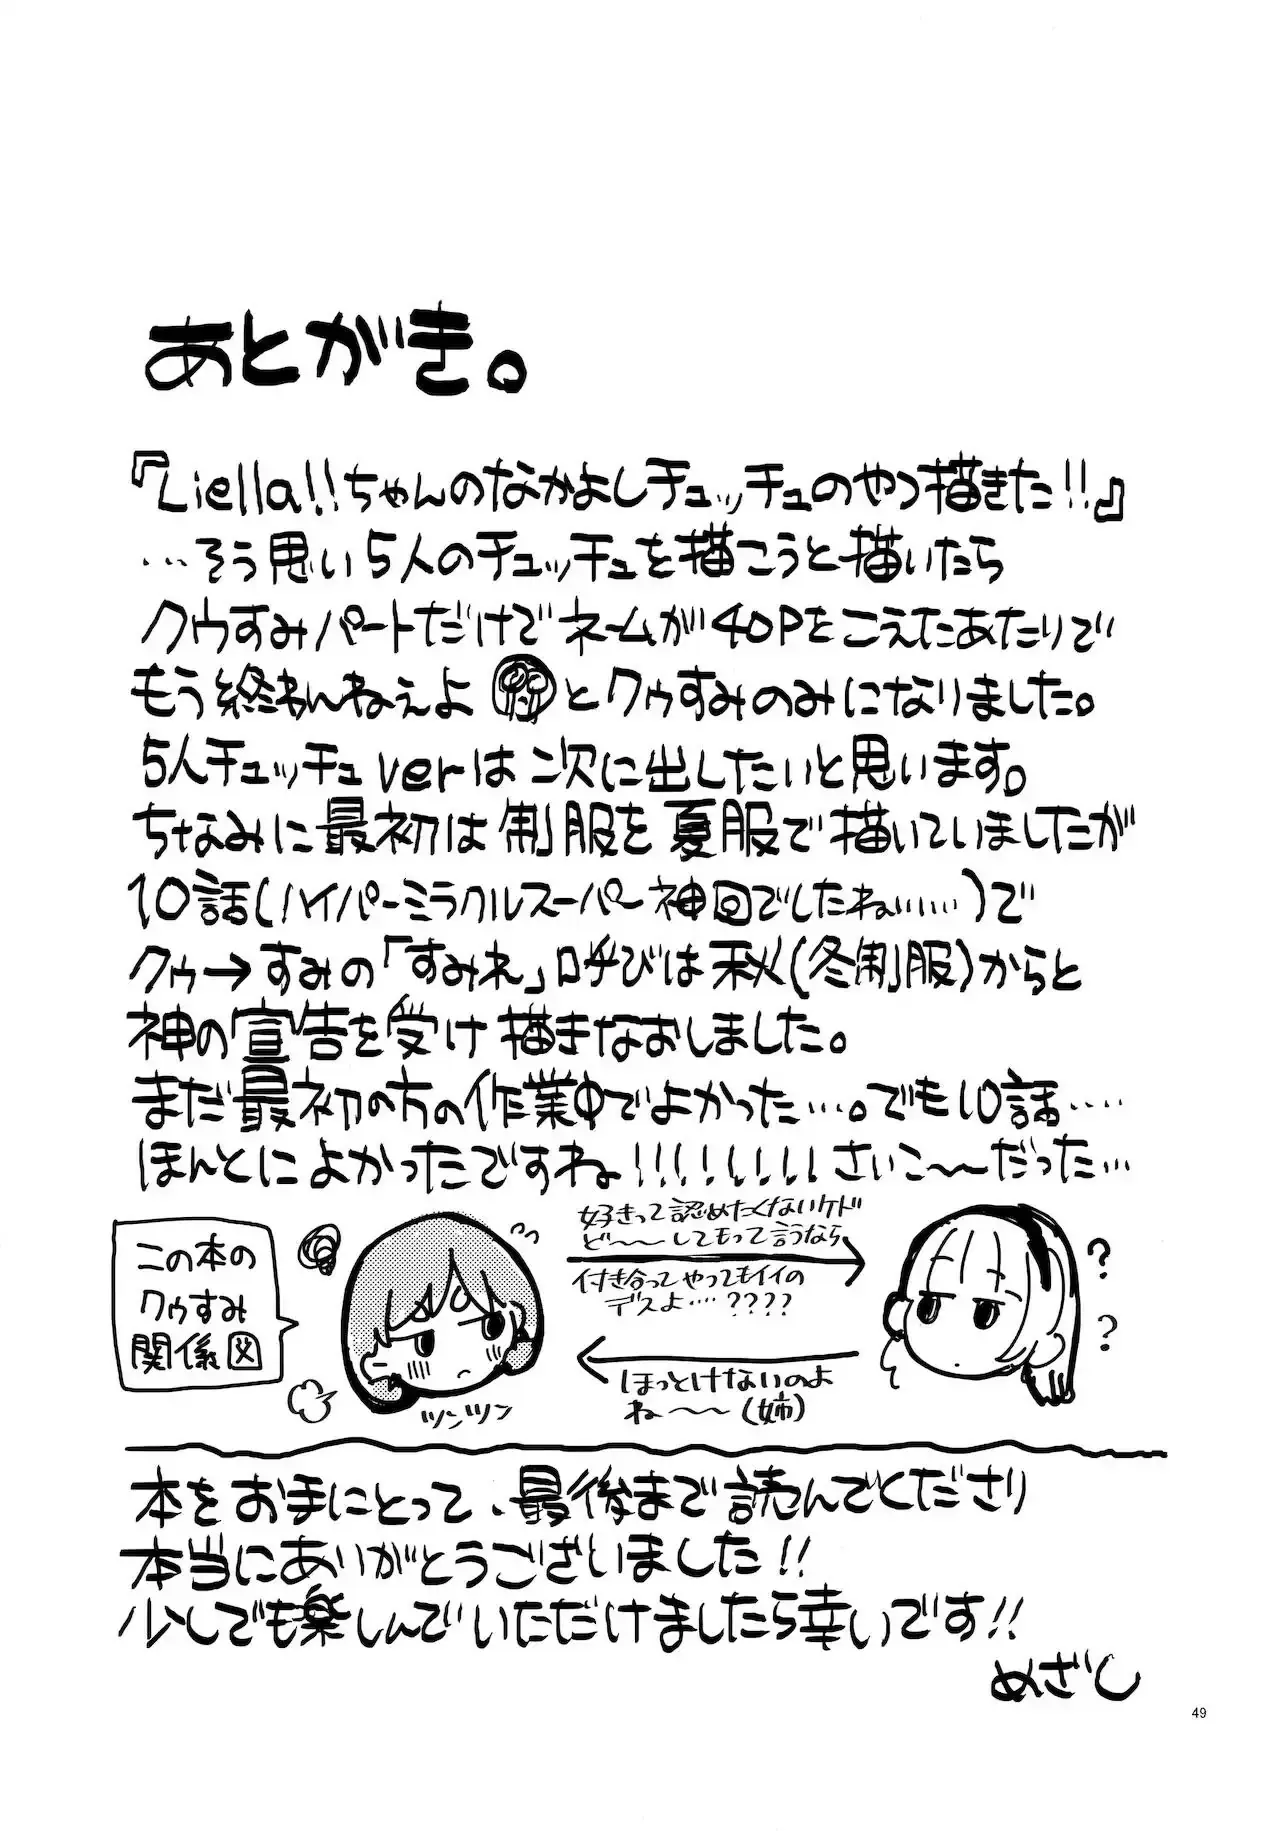 あとがき。
『Liella!!ちゃんのなかよしチュッチュのやつ描きた!!』
…そう思い5人のチュッチュを描こうと描いたら
クゥすみパートだけでネームが40Pをこえたあたりで
もう終わんねぇよ とクゥすみのみになりました。
5人チュッチュverは次に出したいと思います。
ちなみに最初は制服を夏服で描いていましたが
10話(ハイパーミラクルスーパー神回でしたね……)で
クゥ→すみの「すみれ」呼びは秋(冬制服)からと
神の宣告を受け描きなおしました。
まだ最初の方の作業中でよかった…。でも10話……
ほんとによかったですね!!!!!!!!!さいこ〜〜だった…
この本の
クゥすみ
関係図
ツンツン
好きって認めたくないケド
ど〜〜してもって言うなら
付き合ってやってもイイの
デスよ…????
ほっとけないのよ
ね〜〜(姉)
?
?
本をお手にとって、最後まで読んでくださり
本当にありがとうございました!!
少しでも楽しんでいただけましたら幸いです!!
めざし
49